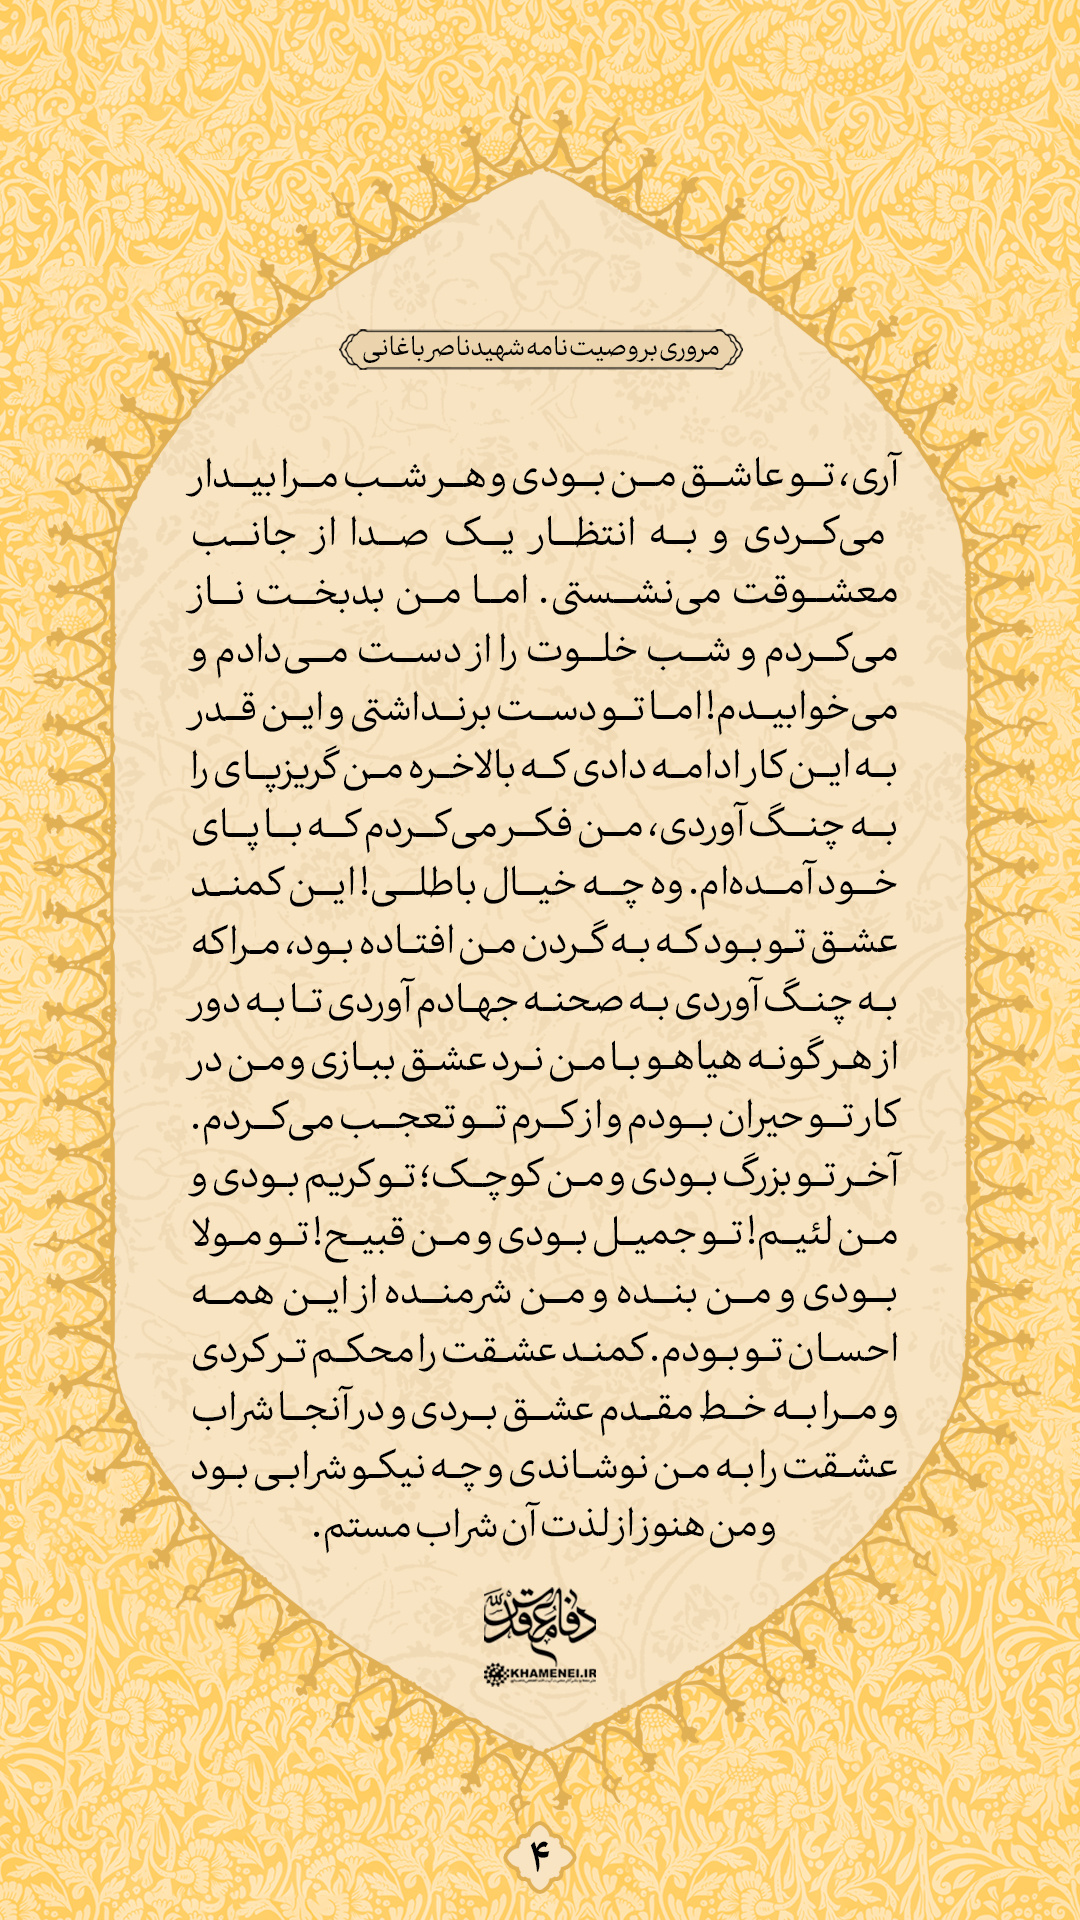 مروری بر وصیت‌نامه شهید ناصر باغانی
آری، تو عاشق من بودی و هر شب مرا بیدار
می‌کردی و به انتظار یک صدا از جانب
معشوقت می‌نشستی. اما من بدبخت ناز
می‌کردم و شب خلوت را از دست می‌دادم و
می‌خوابیدم! اما تو دست برنداشتی و این قدر
به این کار ادامه دادی که بالاخره من گریزپای را
به چنگ آوردی، من فکر می‌کردم که با پای
خود آمده‌ام. وه چه خیال باطلی! این کمند
عشق تو بود که به گردن من افتاده بود، مرا که
به چنگ آوردی به صحنه جهادم آوردی تا به دور
از هر گونه هیاهو با من نرد عشق ببازی و من در
کار تو حیران بودم و از کرم تو تعجب می‌کردم.
آخر تو بزرگ بودی و من کوچک؛ تو کریم بودی و
من لئیم! تو جمیل بودی و من قبیح! تو مولا
بودی و من بنده و من شرمنده از این همه
احسان تو بودم. کمند عشقت را محکم تر کردی
و مرا به خط مقدم عشق بردی و در آنجا شراب
عشقت را به من نوشاندی و چه نیکو شرابی بود
و من هنوز از لذت آن شراب مستم.
دفاع مقدس
KHAMENEI.IR
۴